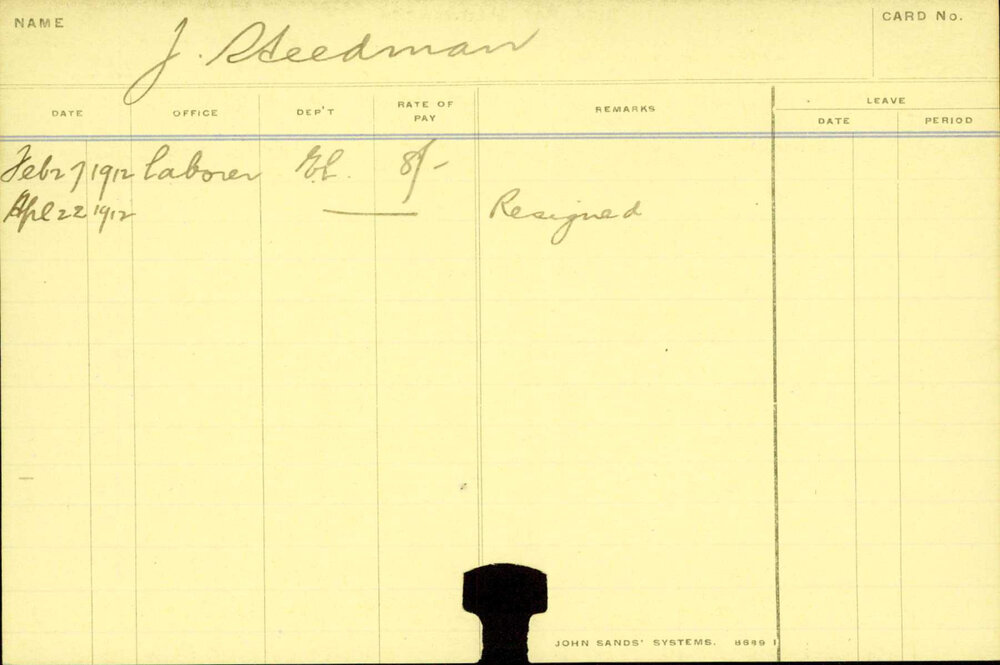 NAME J. Steedman CARD No.
DATE OFFICE DEP'T RATE OF PAY REMARKS LEAVE
DATE PERIOD
Feb 27 1912 Laborer E.L. 8/-
Apl 22 1912 Resigned
JOHN SANDS' SYSTEMS. 8689 1